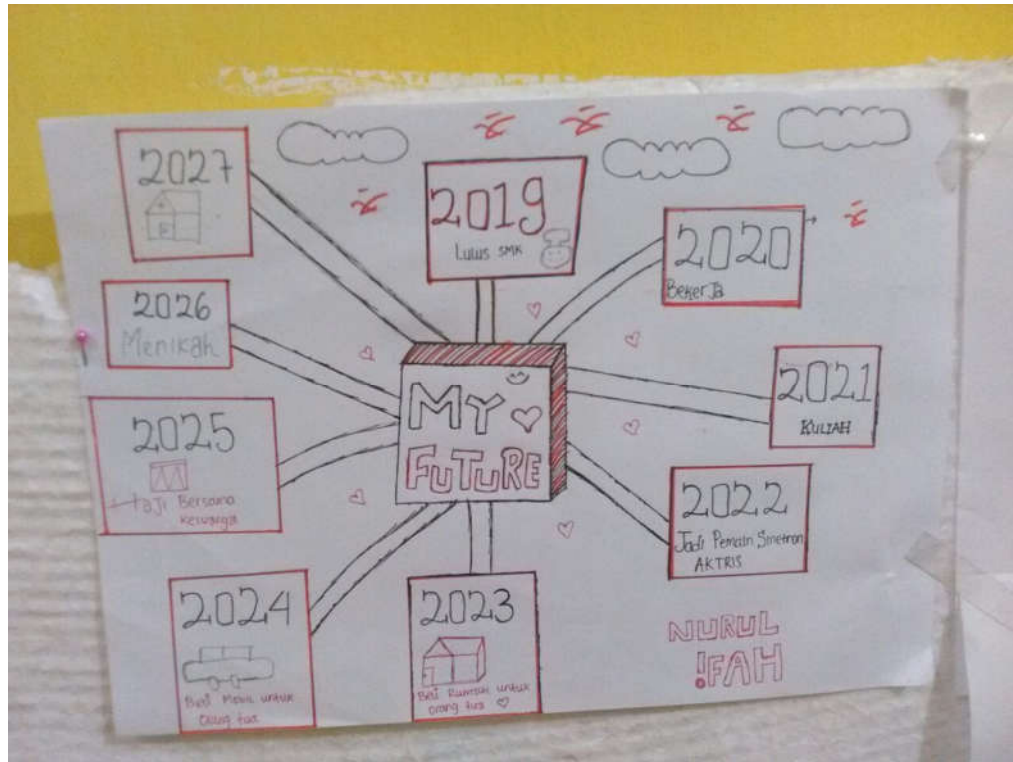 2019
Lulus SMK
2020
Bekerja
2021
KULIAH
2022
Jadi Pemain Sinetron
AKTRIS
2023
Beli Rumah untuk
orang tua
2024
Beli Mobil untuk
orang tua
2025
Haji Bersama
Keluarga
2026
Menikah
2027
MY
FUTURE
NURUL
!FAH